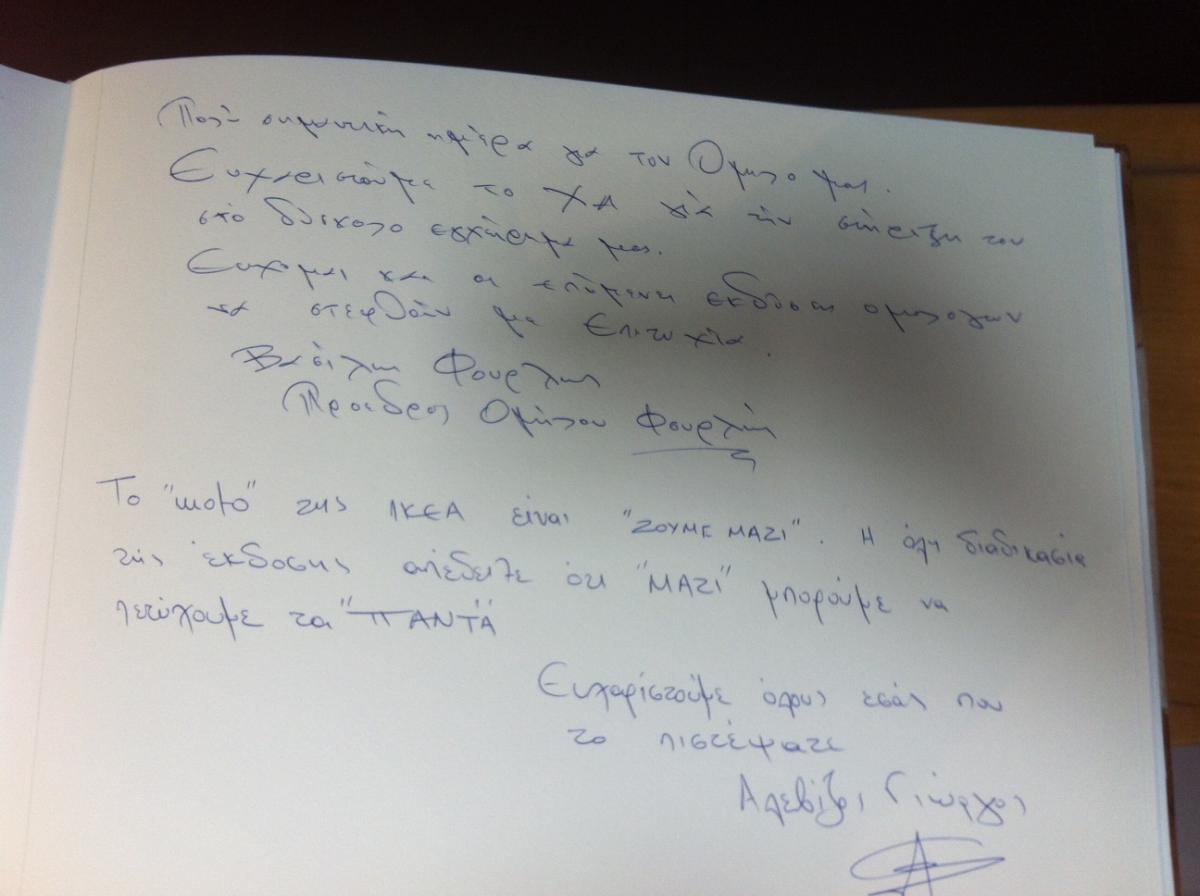 Πολύ σημαντική ημέρα για τον Όμιλο μας.
Ευχαριστούμε το ΧΑ για την στήριξη του
στο δύσκολο εγχείρημα μας.
Εύχομαι και οι επόμενες εκδόσεις ομολόγων
να στεφθούν με επιτυχία.
Βασίλης Φουρλής
Πρόεδρος Ομίλου Φουρλής
Το "moto" της ΙΚΕΑ είναι "ΖΟΥΜΕ ΜΑΖΙ". Η όλη διαδικασία
της έκδοσης απέδειξε ότι "ΜΑΖΙ" μπορούμε να
πετύχουμε τα "ΠΑΝΤΑ"
Ευχαριστούμε όλους εσάς που
το πιστέψατε
Αλεβίζος Γιώργος